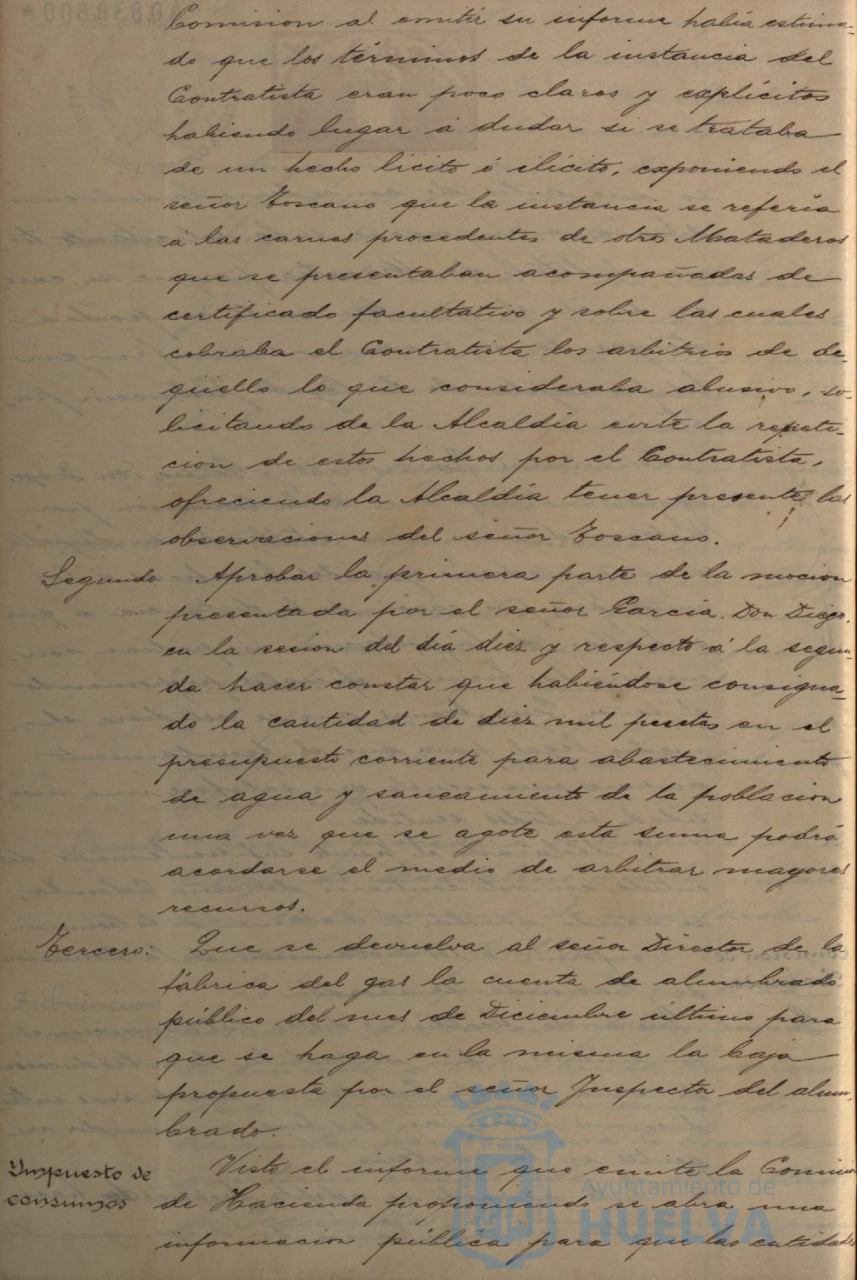 Comision al emitir su informe había estima-
do que los términos de la instancia del
Contratista eran poco claros y explícitos
habiendo lugar á dudar si se trataba
de un hecho lícito ó ilícito, exponiendo el
señor Toscano que la instancia se refería
á las carnes procedentes de otros Mataderos
que se presentaban acompañadas de
certificado facultativo y sobre las cuales
cobraba el Contratista los arbitrios de de-
güello lo que consideraba abusivo, so-
licitando de la Alcaldía evite la repeti-
cion de estos hechos por el Contratista,
ofreciendo la Alcaldía tener presente las
observaciones del señor Toscano.
Segundo. Aprobar la primera parte de la mocion
presentada por el señor García Don Diego,
en la sesion del día diez y respecto á la segun-
da hacer constar que habiéndose consigna-
do la cantidad de diez mil pesetas en el
presupuesto corriente para abastecimiento
de agua y saneamiento de la poblacion
una vez que se agote esta suma podrá
acordarse el medio de arbitrar mayores
recursos.
Tercero: Que se devuelva al señor Director de la
fábrica del gas la cuenta de alumbrado
público del mes de Diciembre último para
que se haga en la misma la baja
propuesta por el señor Inspector del alum-
brado.
Impuesto de
consumos
Visto el informe que emite la Comision
de Hacienda proponiendo se abra una
informacion pública para que las entidades
Ayuntamiento de
HUELVA